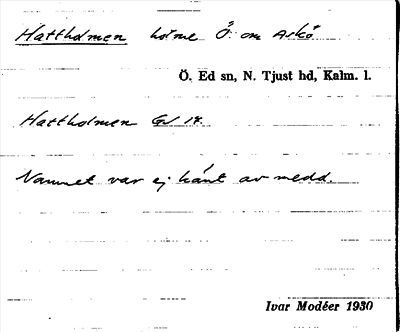 Hattholmen holme Ö. om Askö
Ö. Ed sn, N. Tjust hd, Kalm. l.
Hattholmen GV 14.
Namnet var ej känt av medd.
Ivar Modéer 1930